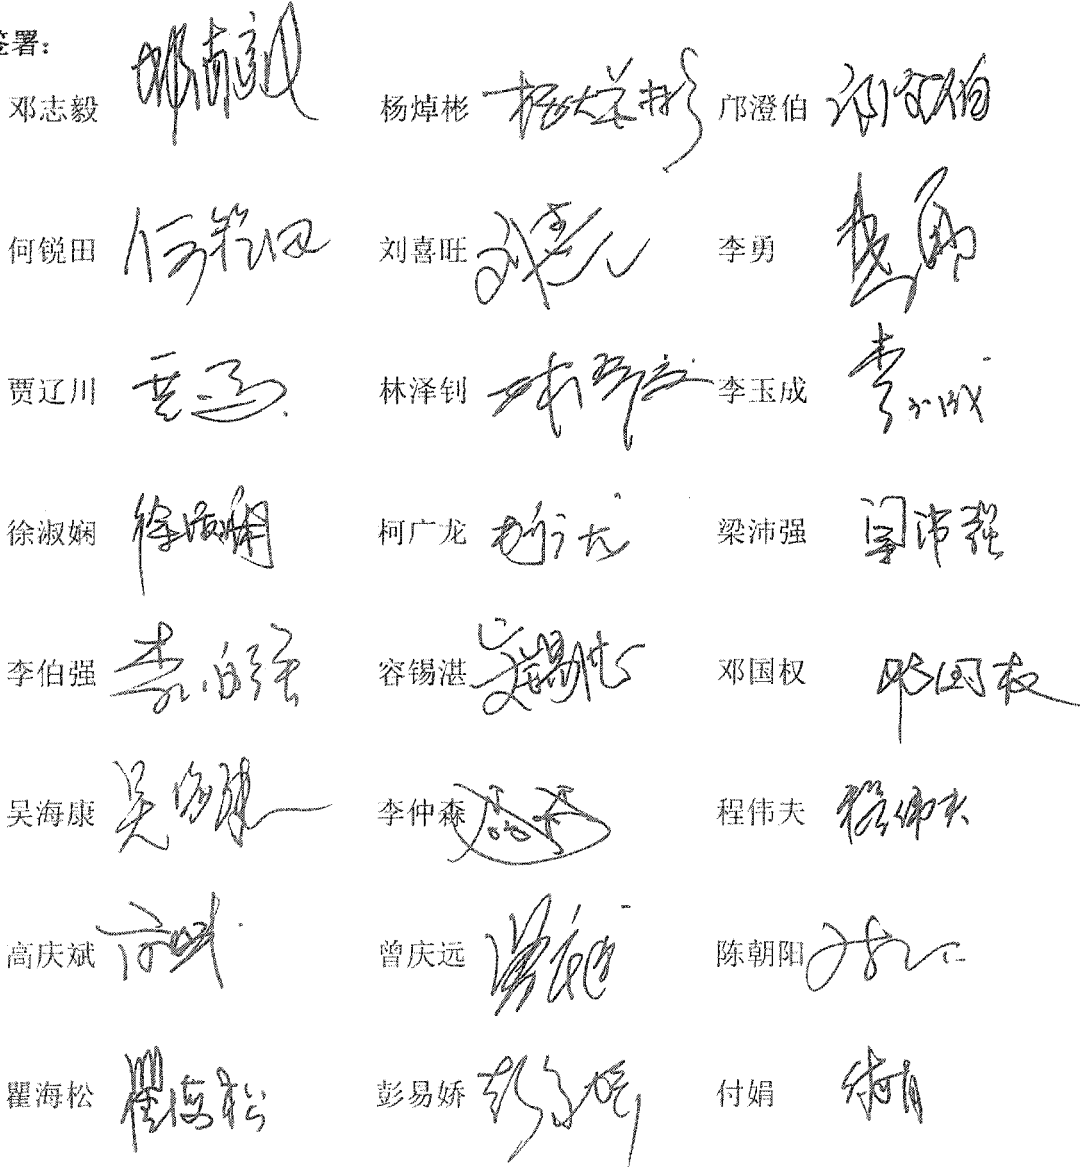 签署：
邓志毅 邓志毅 杨焯彬 杨焯彬 邝澄伯 邝澄伯
何锐田 何锐田 刘喜旺 刘喜旺 李勇 李勇
贾辽川 贾辽川 林泽钊 林泽钊 李玉成 李玉成
徐淑娴 徐淑娴 柯广龙 柯广龙 梁沛强 梁沛强
李伯强 李伯强 容锡湛 容锡湛 邓国权 邓国权
吴海康 吴海康 李仲森 程伟夫 程伟夫
高庆斌 高庆斌 曾庆远 曾庆远 陈朝阳
瞿海松 瞿海松 彭易娇 彭易娇 付娟 付娟